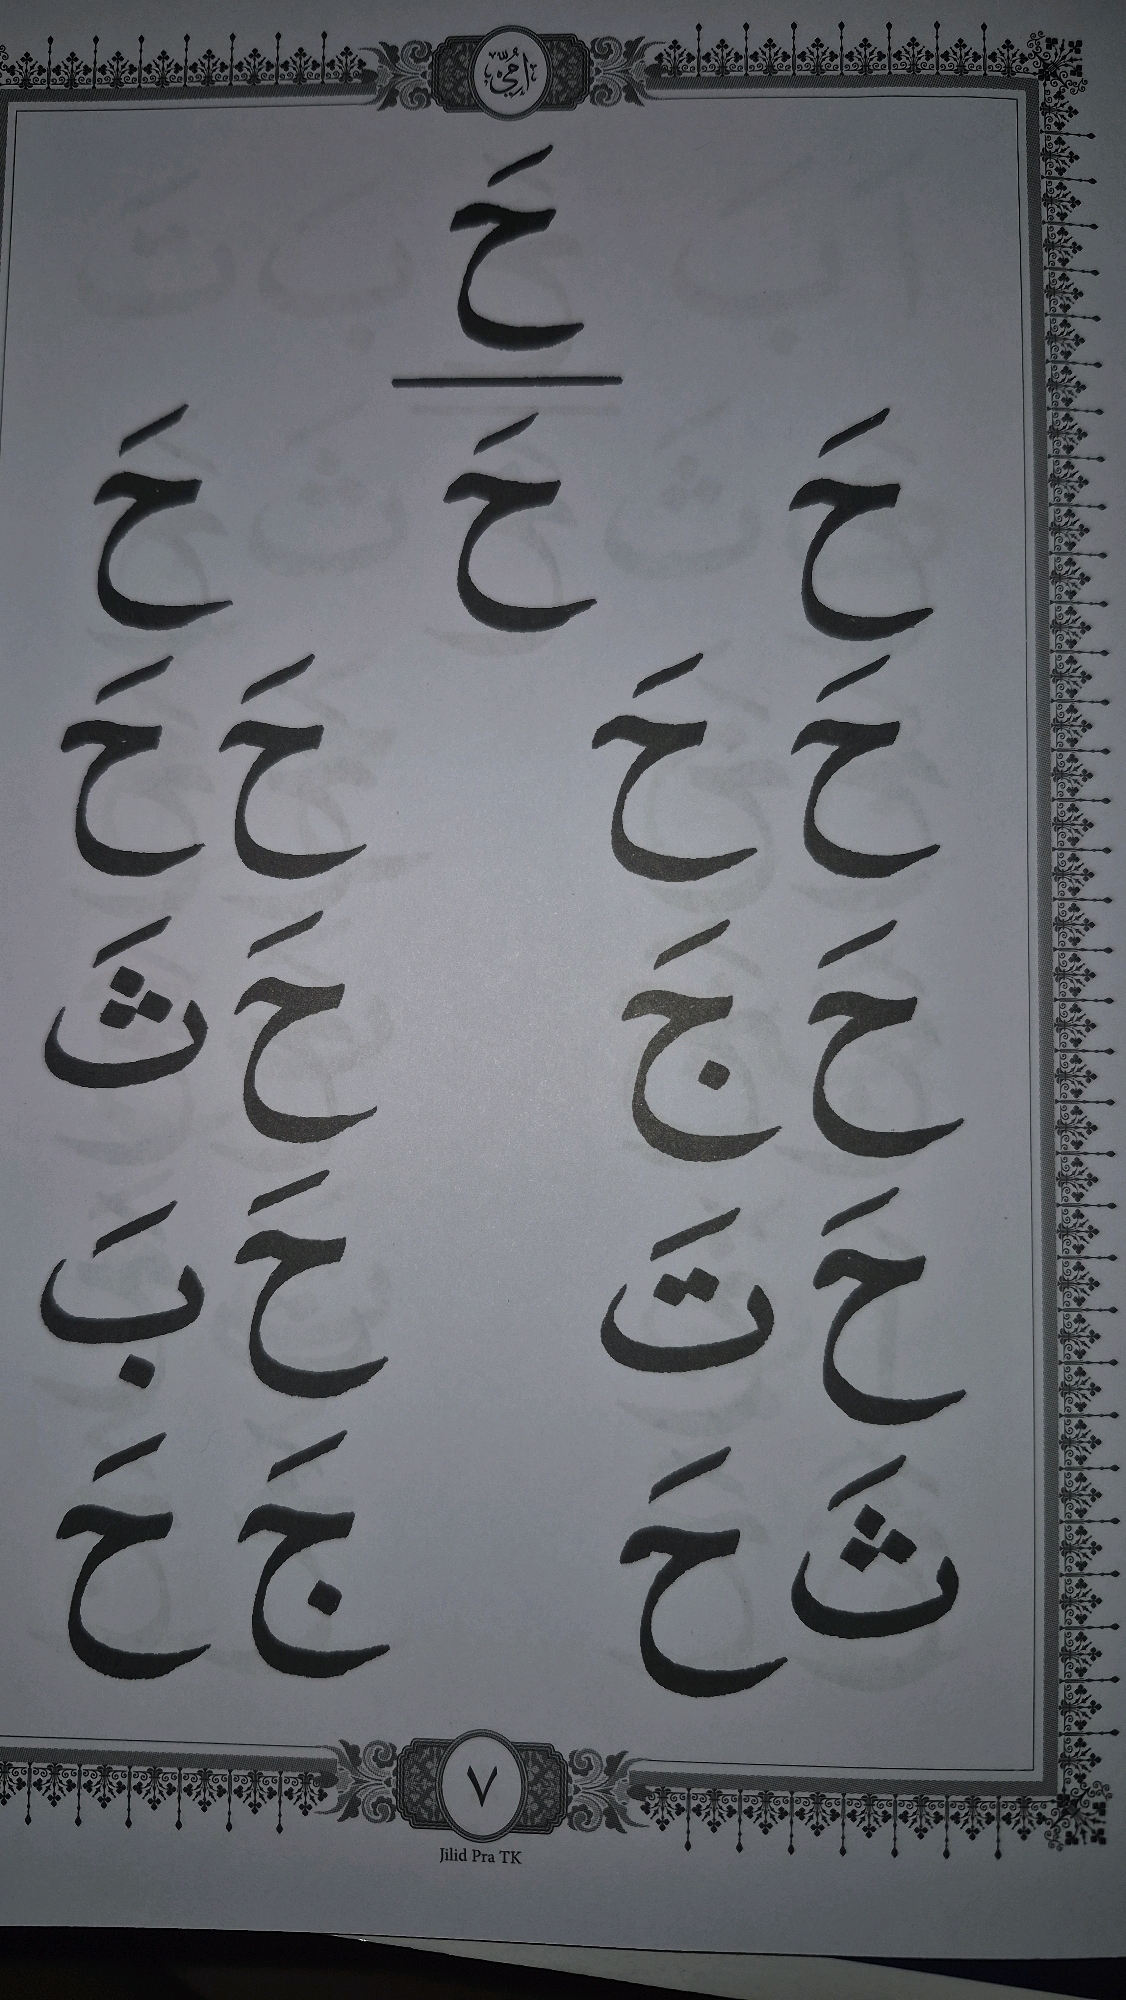 أُمِّيْ
حَ
حَ حَ حَ
حَ حَ حَ حَ
حَ جَ حَ ثَ
حَ تَ حَ بَ
ثَ حَ جَ حَ
٧
Jilid Pra TK